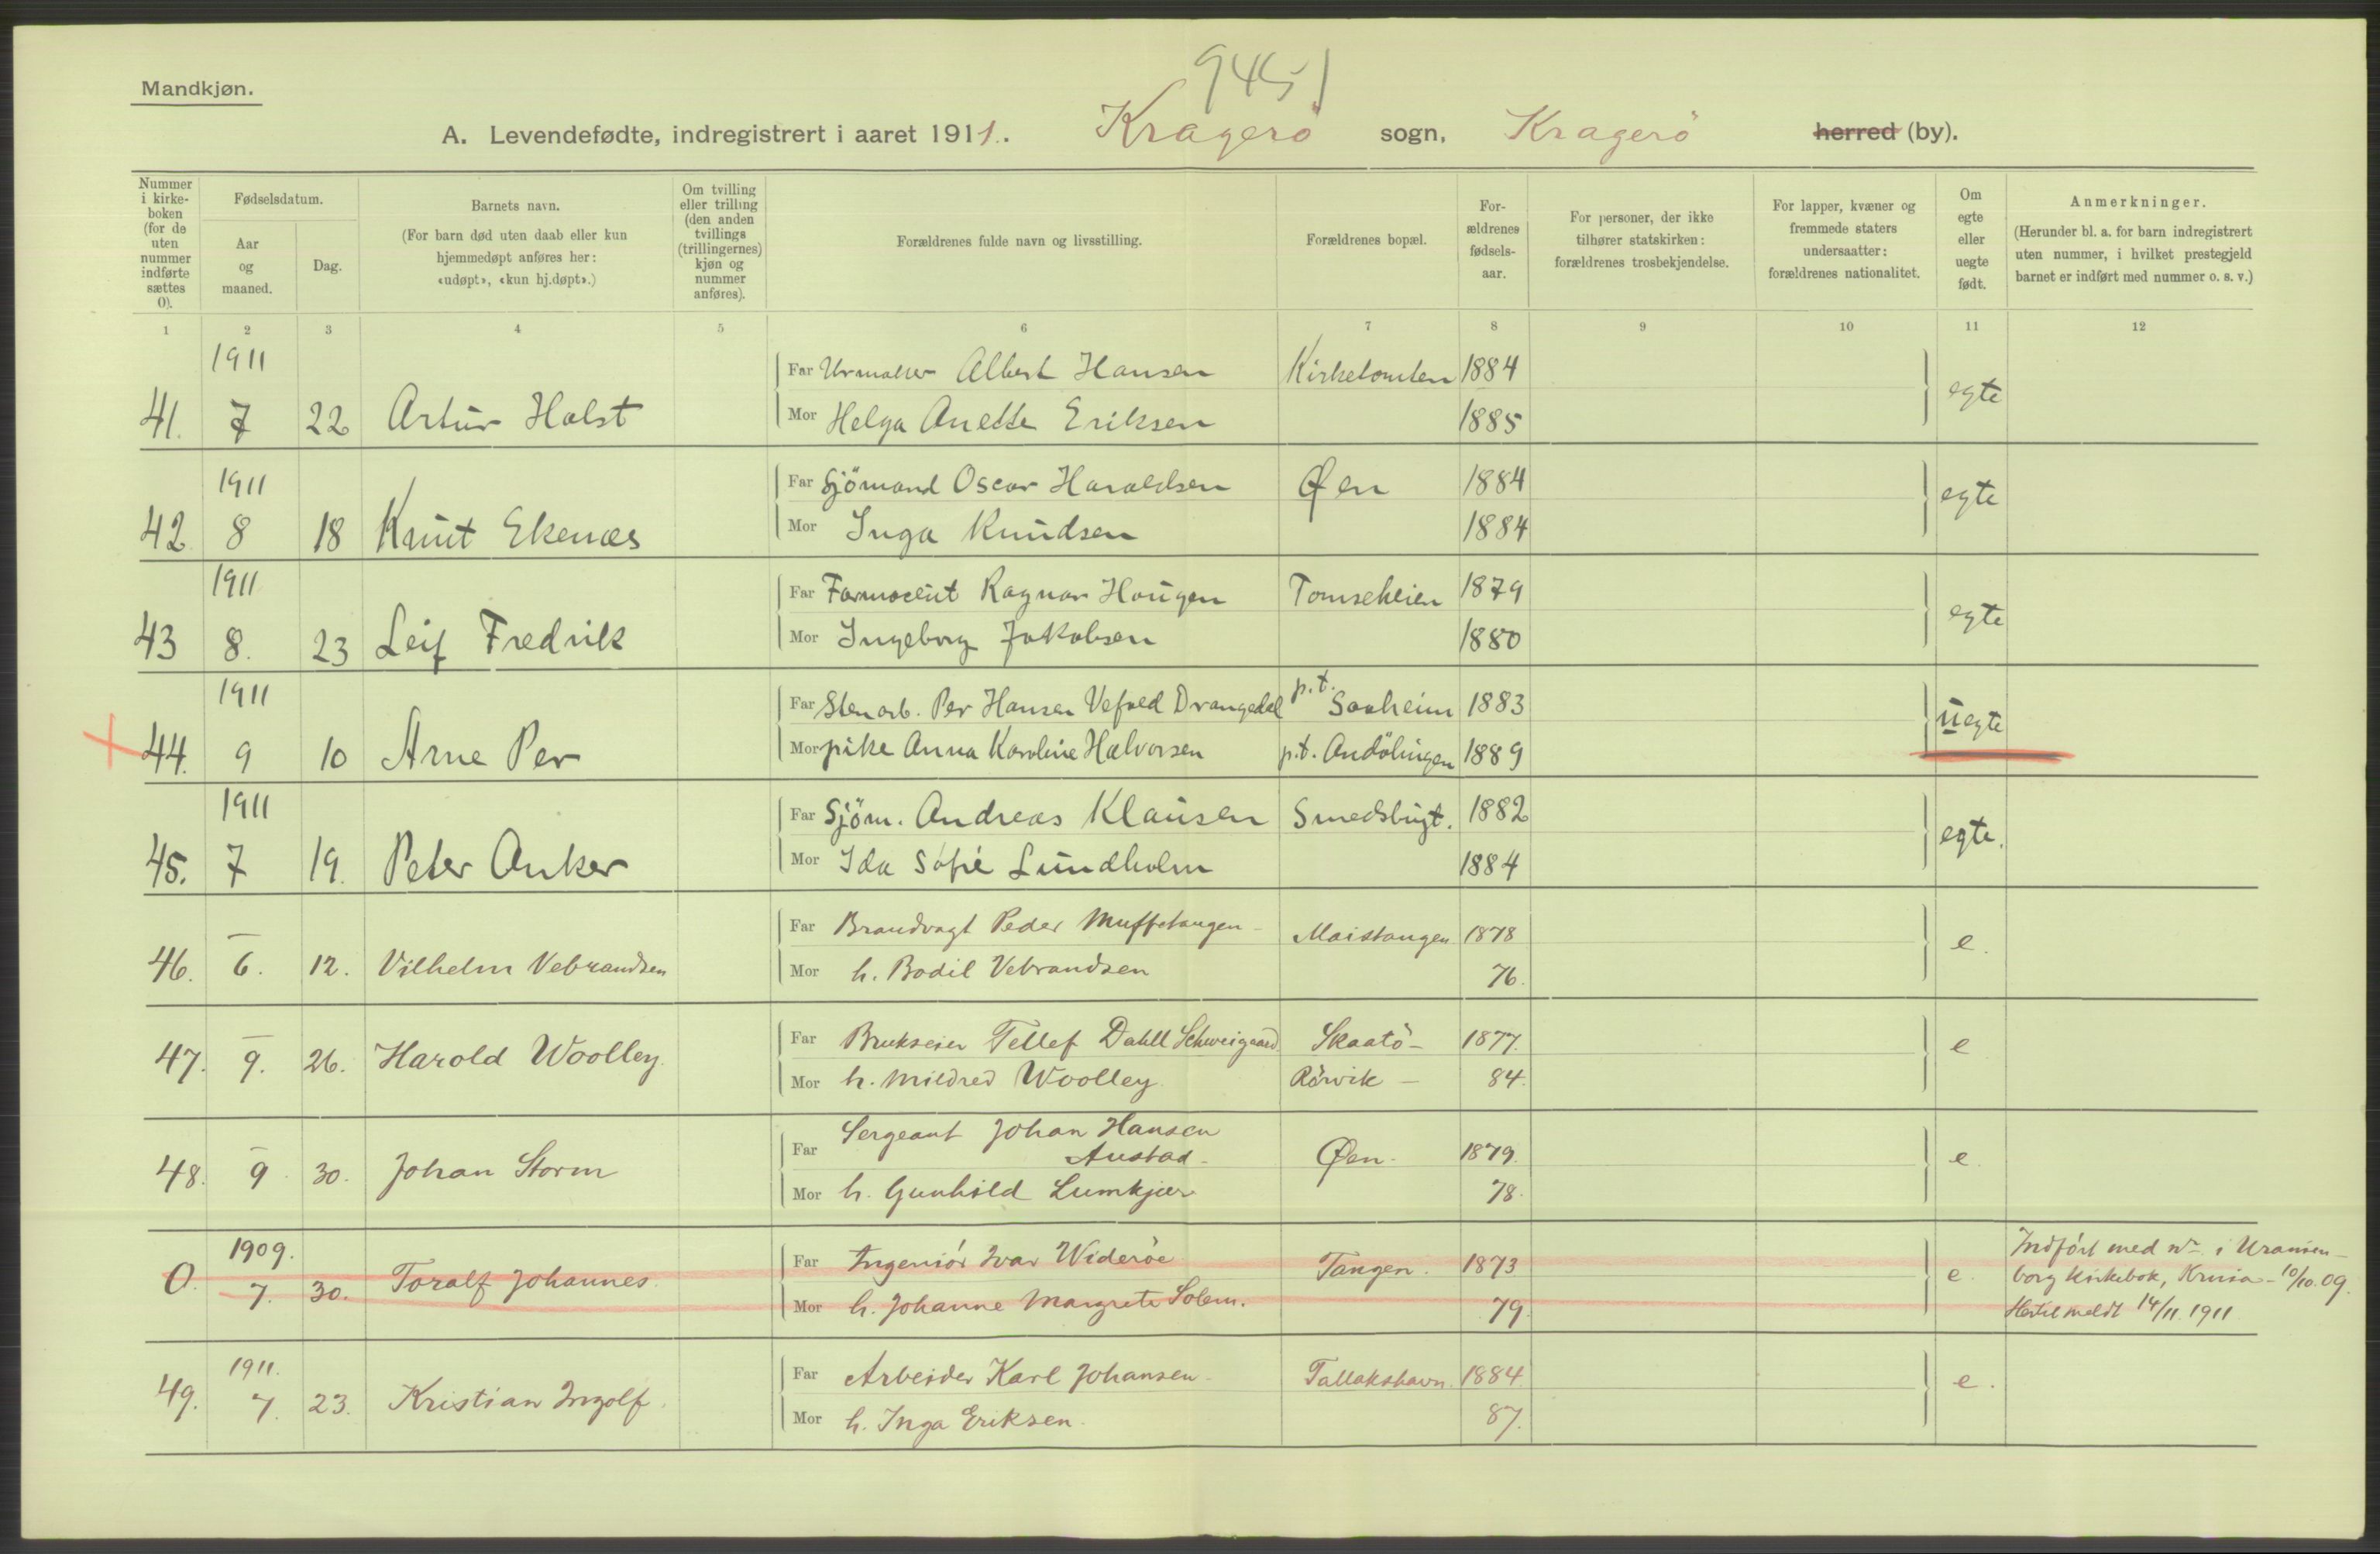 9451
Mandkjøn.
A. Levendefødte, indregistrert i aaret 1911. Kragerö sogn, Kragerö herred (by).
Nummer i kirke-boken (for de uten nummer indførte sættes 0).
Fødselsdatum.
Aar og maaned.
Dag.
Barnets navn.
(For barn død uten daab eller kun hjemmedøpt anføres her: «udøpt», «kun hj.døpt».)
Om tvilling eller trilling (den anden tvillings (trillingernes) kjøn og nummer anføres).
Forældrenes fulde navn og livsstilling.
Forældrenes bopæl.
For-ældrenes fødsels-aar.
For personer, der ikke tilhører statskirken: forældrenes trosbekjendelse.
For lapper, kvæner og fremmede staters undersaatter: forældrenes nationalitet.
Om egte eller uegte født.
Anmerkninger.
(Herunder bl. a. for barn indregistrert uten nummer, i hvilket prestegjeld barnet er indført med nummer o. s. v.)
1 2 3 4 5 6 7 8 9 10 11 12
1911
Far Urmaker Albert Hansen Kirketomten 1884
41. 7 22 Artur Holst egte
Mor Helga Anette Eriksen 1885
1911
Far Sjömand Oscar Haraldsen Øen 1884
42 8 18 Knut Ekenæs egte
Mor Inga Knudsen 1884
1911
Far Farmaceut Ragnar Haugen Tomseheien 1879
43 8. 23 Leif Fredrik egte
Mor Ingeborg Jakobsen 1880
1911
Far Stenarb. Per Hansen Vefald Drangedal p.t. Saaheim 1883
44. 9 10 Arne Per uegte
Mor pike Anna Karoline Halvorsen p.t. Andölingen 1889
1911
Far Sjöm. Andreas Klausen Smedsbugt. 1882
45. 7 19. Peter Anker egte.
Mor Ida Sofie Lundholm 1884
Far Brandvagt Peder Muffetangen - Maistangen 1878
46. — 6. 12. Vilhelm Vebrandsen e.
Mor h. Bodil Vebrandsen 76.
Far Brukseier Tellef Dahll Schweigaard Skaatö - 1877.
47. — 9. 26. Harold Woolley. e
Mor h. Mildred Woolley. Rörvik - 84.
Far Sergeant Johan Hansen
Austad - Øen - 1879.
48. — 9 30. Johan Storm e.
Mor h. Gunhild Lumkjær 78.
1909.
Far Ingeniör Ivar Wideröe Tangen. 1873
0. 7. 30. Toralf Johannes. e.
Mor h. Johanne Margrete Solem. 79.
Indfört med nr. i Uranien-
borg kirkebok, Kr.nia - 10/10.09.
Hertil meldt 14/11 1911
1911.
Far Arbeider Karl Johansen - Tallakshavn. 1884
49. 7. 23. Kristian Ingolf. e.
Mor h. Inga Eriksen. 87.